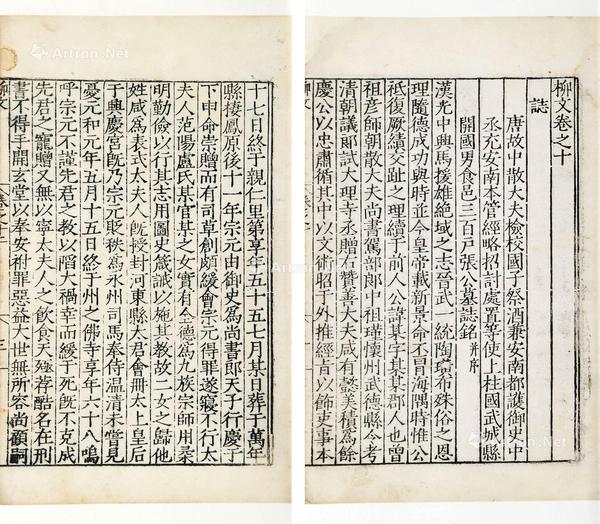 柳文卷之十
誌
唐故中散大夫檢校國子祭酒兼安南都護御史中
丞充安南本管經略招討處置等使上柱國武城縣
開國男食邑三百戶張公墓誌銘 并序
漢光中興馬援雄絕域之志晉武一統陶璜布殊俗之恩
理隨德成功與時並今皇帝載新景命丕冒海隅時惟公
祗復厥績交趾之理續于前人公諱某字某某郡人也曾
祖彥師朝散大夫尚書駕部郎中祖瑾懷州武德縣令考
清朝議郎試大理寺丞贈右贊善大夫咸有懿美積為餘
慶公以忠肅循其中以文術昭于外推經旨以飾吏事本
十七日終于親仁里第享年五十五七月某日葬于萬年
縣棲鳳原後十一年宗元由御史為尚書郎天子行慶于
下申命崇贈而有司草創頗緩會宗元得罪遂寢不行太
夫人范陽盧氏某官某之女實有全德為九族宗師用柔
明勤儉以行其志用圖史箴誡以施其教故二女之歸他
姓咸為表式太夫人既授封河東縣太君會冊太上皇后
于興慶宮既乃宗元貶秩為永州司馬奉侍溫凊未嘗見
憂元和元年五月十五日終于州之佛寺享年六十八嗚
呼宗元不謹先君之教以陷大禍幸而緩于死既不克成
先君之寵贈又無以寧太夫人之飲食天殛荐酷名在刑
書不得手開玄堂以奉安祔罪惡益大世無所容尚顧嗣
柳文
Artron.Net
Artron.Net